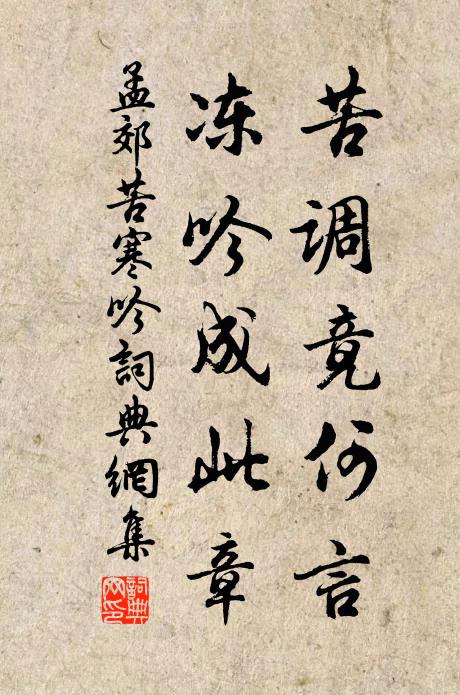 苦調竟何言
冻吟成此章
孟郊苦寒吟詞典網集
詞典网印